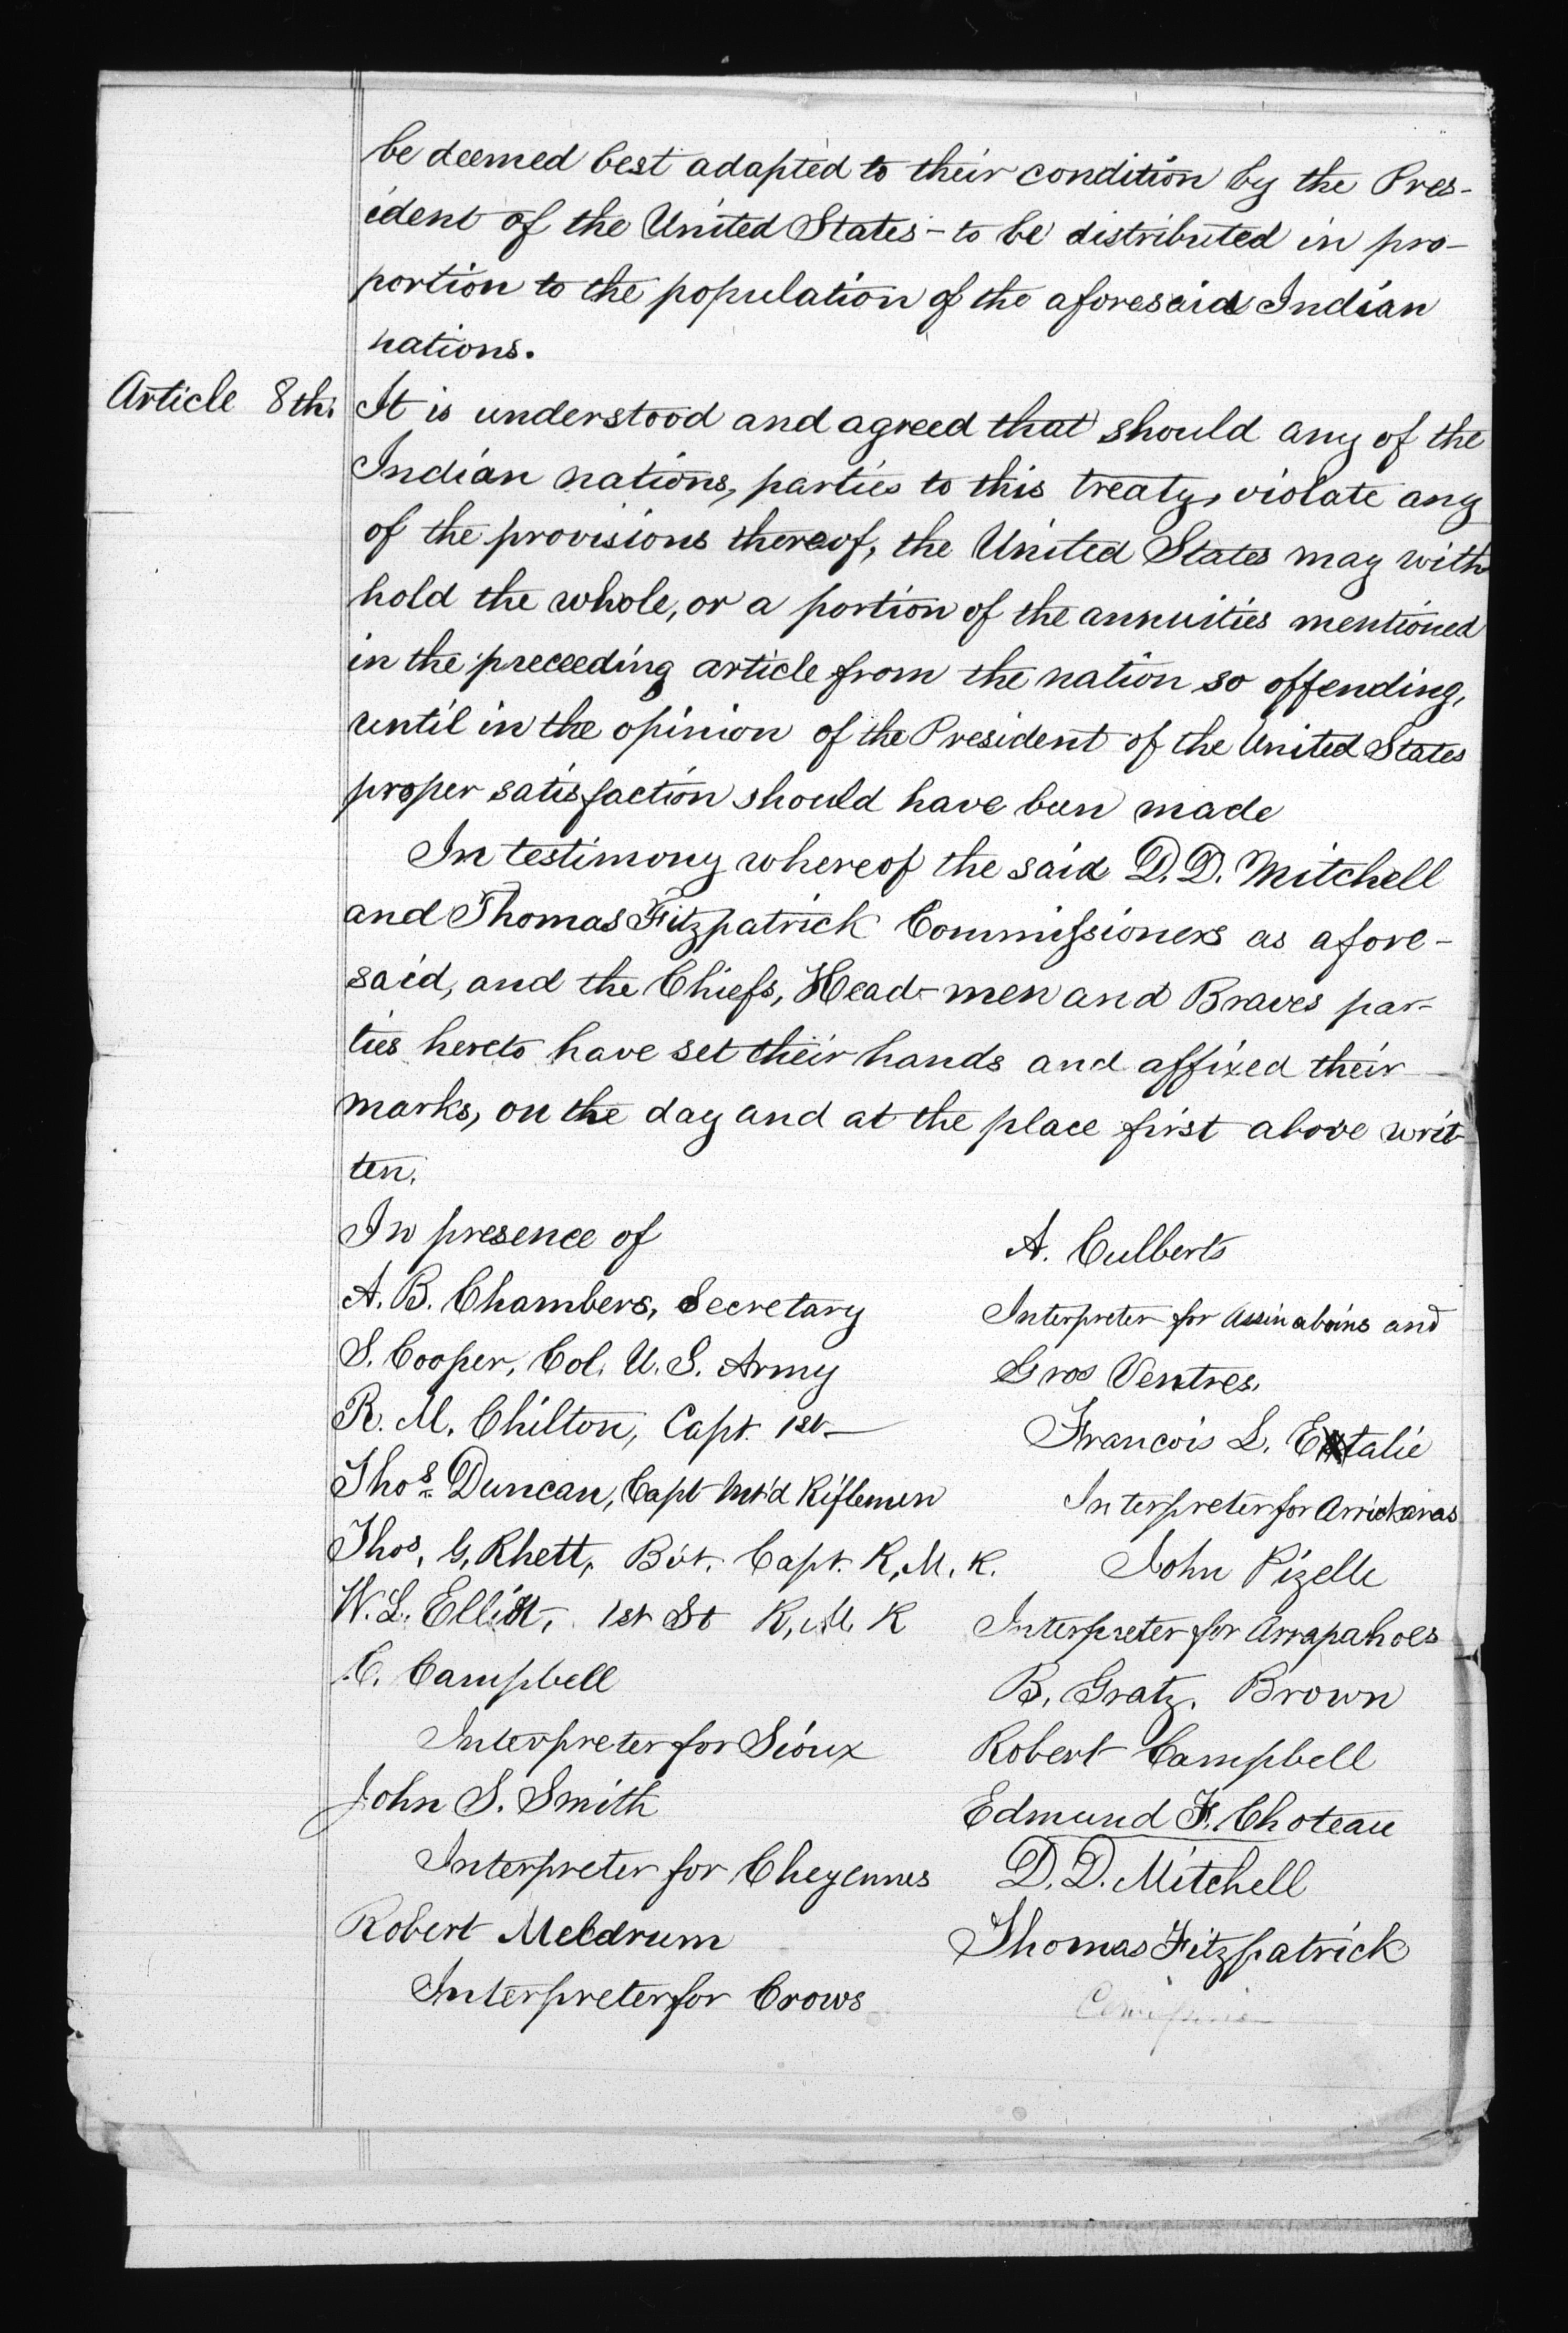 be deemed best adapted to their condition by the Pres-
ident of the United States - to be distributed in pro-
portion to the population of the aforesaid Indian
nations.
Article 8th. It is understood and agreed that should any of the
Indian nations, parties to this treaty, violate any
of the provisions thereof, the United States may with
hold the whole, or a portion of the annuities mentioned
in the preceeding article from the nation so offending,
until in the opinion of the President of the United States
proper satisfaction should have been made
In testimony whereof the said D. D. Mitchell
and Thomas Fitzpatrick Commissioners as afore-
said, and the Chiefs, Head-men and Braves par-
ties hereto have set their hands and affixed their
marks, on the day and at the place first above writ
ten.
In presence of
A. B. Chambers, Secretary
S. Cooper, Col. U. S. Army
R. M. Chilton, Capt. 1st
Thos. Duncan, Capt Mt'd Riflemen
Thos. G. Rhett, Bvt. Capt. R. M. R.
W. L. Elliott, 1st Lt R. M. R
C. Campbell
Interpreter for Sioux
John S. Smith
Interpreter for Cheyennes
Robert Meldrum
Interpreter for Crows
A. Culberts
Interpreter for Assinaboins and
Gros Ventres.
Francois L. Etalie
Interpreter for Arrickaras
John Pizelle
Interpreter for Arrapahoes
B. Gratz. Brown
Robert Campbell
Edmund F. Choteau
D. D. Mitchell
Thomas Fitzpatrick